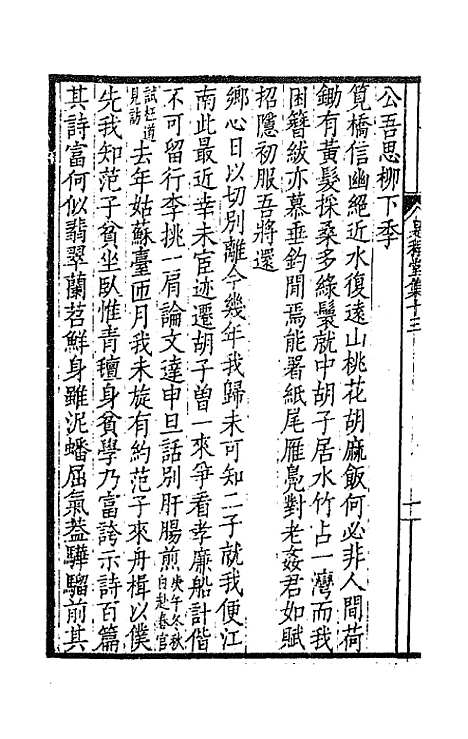 公吾思柳下季
筧橋信幽絕近水復遠山桃花胡麻飯何必非人間荷
鋤有黃髮採桑多綠鬟就中胡子居水竹占一灣而我
困簪紱亦慕垂釣閒焉能署紙尾雁鳧對老姦君如賦
招隱初服吾將還
鄉心日以切別離今幾年我歸未可知二子就我便江
南此最近幸未宦迹遷胡子曾一來爭看孝廉船計偕
不可留行李挑一肩論文達申旦話別肝腸煎庚午冬秋白赴春官
試枉道見訪去年姑蘇臺匝月我未旋有約范子來舟楫以僕
先我知范子貧坐臥惟青氊身貧學乃富誇示詩百篇
其詩富何似翡翠蘭苕鮮身雖泥蟠屈氣葢驊騮前其
集十三